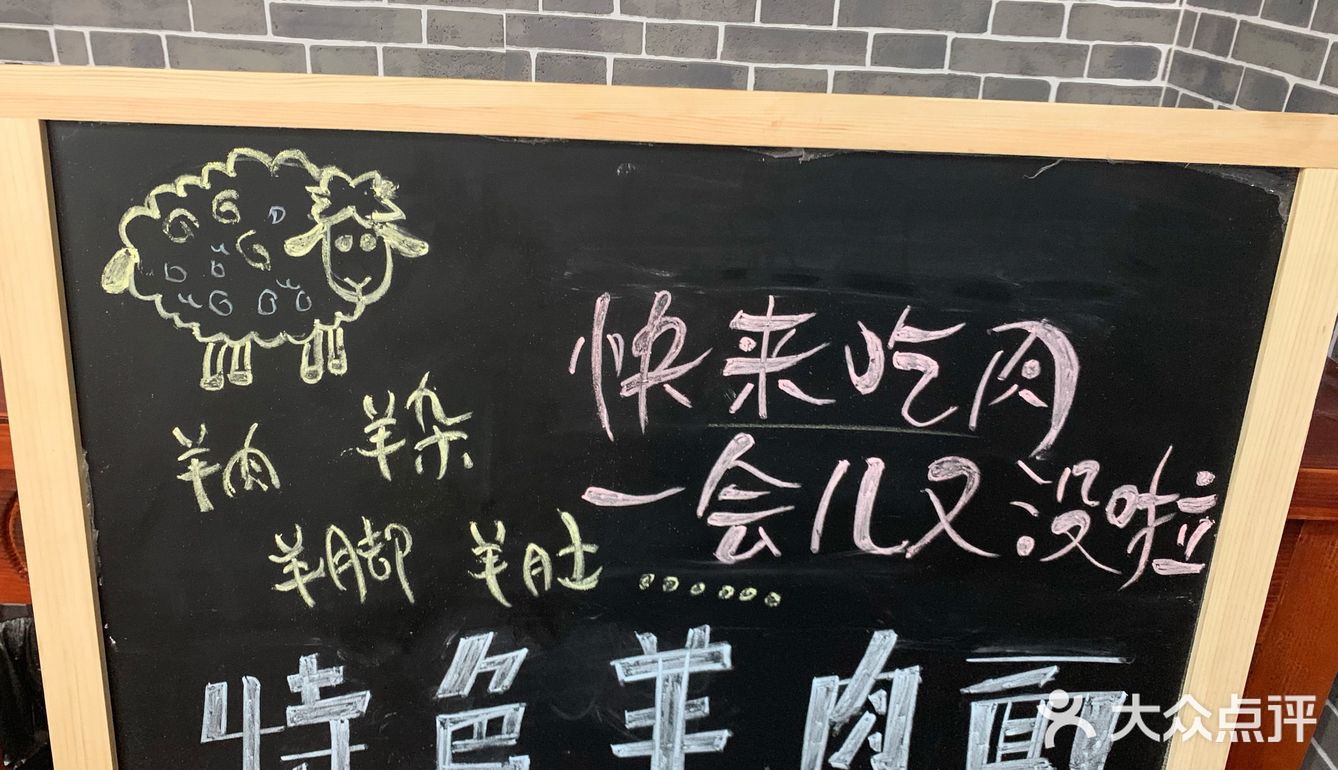 快来吃肉
一会儿又没啦
羊肉 羊杂
羊脚 羊肚 ......
特色羊肉面
大众点评